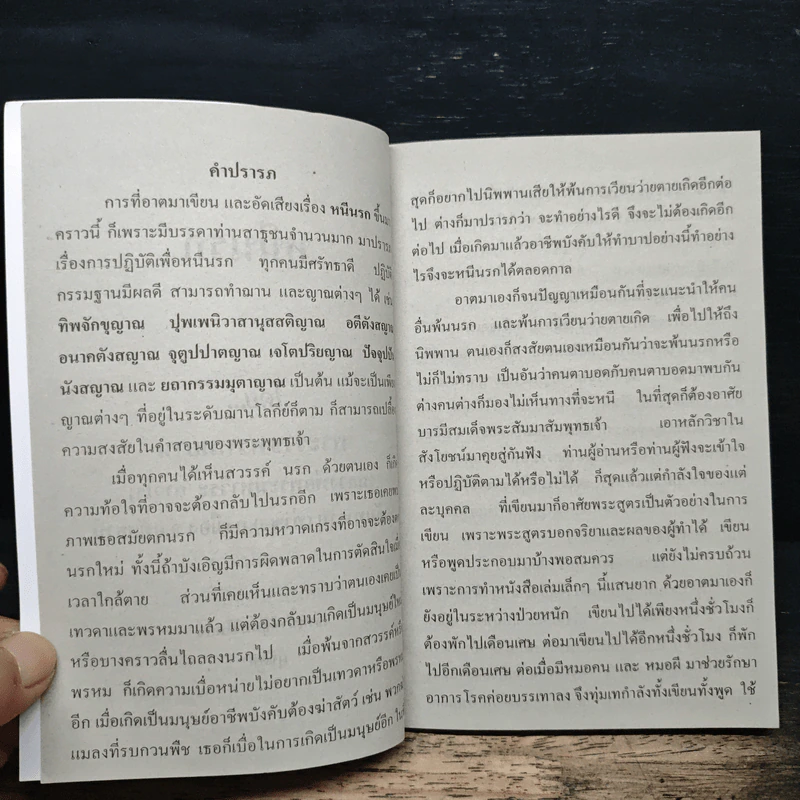 คำปรารภ
การที่อาตมาเขียน และอัดเสียงเรื่อง หนีนรก ขึ้นมา
คราวนี้ ก็เพราะมีบรรดาท่านสาธุชนจำนวนมาก มาปรารภ
เรื่องการปฏิบัติเพื่อหนีนรก ทุกคนมีศรัทธาดี ปฏิบัติ
กรรมฐานมีผลดี สามารถทำฌาน และญาณต่างๆ ได้ เช่น
ทิพจักขุญาณ ปุพเพนิวาสานุสสติญาณ อตีตังสญาณ
อนาคตังสญาณ จุตูปปาตญาณ เจโตปริยญาณ ปัจจุปปัน
นังสญาณ และ ยถากรรมมุตาญาณ เป็นต้น แม้จะเป็นเพียง
ญาณต่างๆ ที่อยู่ในระดับฌานโลกีย์ก็ตาม ก็สามารถเปลื้อง
ความสงสัยในคำสอนของพระพุทธเจ้า
เมื่อทุกคนได้เห็นสวรรค์ นรก ด้วยตนเอง ก็เกิด
ความท้อใจที่อาจจะต้องกลับไปนรกอีก เพราะเธอเคยพบ
ภาพเธอสมัยตกนรก ก็มีความหวาดเกรงที่อาจจะต้อง
นรกใหม่ ทั้งนี้ถ้าบังเอิญมีการผิดพลาดในการตัดสินใจเมื่อ
เวลาใกล้ตาย ส่วนที่เคยเห็นและทราบว่าตนเองเคยเป็น
เทวดาและพรหมมาแล้ว แต่ต้องกลับมาเกิดเป็นมนุษย์ใหม่
หรือบางคราวลื่นไถลลงนรกไป เมื่อพ้นจากสวรรค์
พรหม ก็เกิดความเบื่อหน่ายไม่อยากเป็นเทวดาหรือพรหม
อีก เมื่อเกิดเป็นมนุษย์อาชีพบังคับต้องฆ่าสัตว์ เช่น พวก
แมลงที่รบกวนพืช เธอก็เบื่อในการเกิดเป็นมนุษย์อีก
สุดก็อยากไปนิพพานเสียให้พ้นการเวียนว่ายตายเกิดอีกต่อ
ไป ต่างก็มาปรารภว่า จะทำอย่างไรดี จึงจะไม่ต้องเกิดอีก
ต่อไป เมื่อเกิดมาแล้วอาชีพบังคับให้ทำบาปอย่างนี้ทำอย่าง
ไรจึงจะหนีนรกได้ตลอดกาล
อาตมาเองก็จนปัญญาเหมือนกันที่จะแนะนำให้คน
อื่นพ้นนรก และพ้นการเวียนว่ายตายเกิด เพื่อไปให้ถึง
นิพพาน ตนเองก็สงสัยตนเองเหมือนกันว่าจะพ้นนรกหรือ
ไม่ก็ไม่ทราบ เป็นอันว่าคนตาบอดกับคนตาบอดมาพบกัน
ต่างคนต่างก็มองไม่เห็นทางที่จะหนี ในที่สุดก็ต้องอาศัย
บารมีสมเด็จพระสัมมาสัมพุทธเจ้า เอาหลักวิชาใน
สังโยชน์มาคุยสู่กันฟัง ท่านผู้อ่านหรือท่านผู้ฟังจะเข้าใจ
หรือปฏิบัติตามได้หรือไม่ได้ ก็สุดแล้วแต่กำลังใจของแต่
ละบุคคล ที่เขียนมาก็อาศัยพระสูตรเป็นตัวอย่างในการ
เขียน เพราะพระสูตรบอกจริยาและผลของผู้ทำได้ เขียน
หรือพูดประกอบมาบ้างพอสมควร แต่ยังไม่ครบถ้วน
เพราะการทำหนังสือเล่มเล็กๆ นี้แสนยาก ด้วยอาตมาเองก็
ยังอยู่ในระหว่างป่วยหนัก เขียนไปได้เพียงหนึ่งชั่วโมงก็
ต้องพักไปเดือนเศษ ต่อมาเขียนไปได้อีกหนึ่งชั่วโมง ก็พัก
ไปอีกเดือนเศษ ต่อเมื่อมีหมอคน และ หมอผี มาช่วยรักษา
อาการโรคค่อยบรรเทาลง จึงทุ่มเทกำลังทั้งเขียนทั้งพูด ใช้